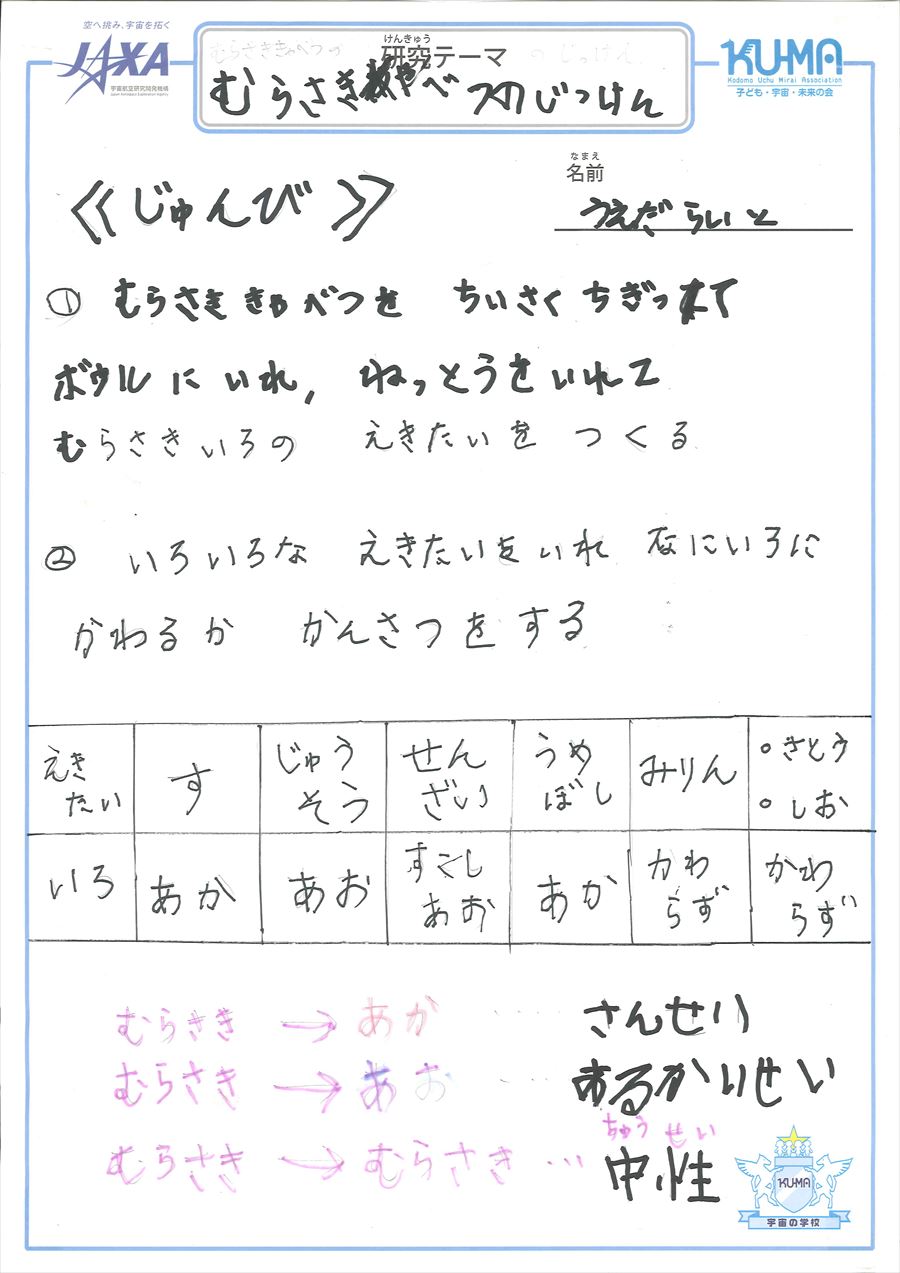 空へ挑み、宇宙を拓く
JAXA
宇宙航空研究開発機構
Japan Aerospace Exploration Agency
けんきゅう
研究テーマ
むらさききゃべつのじっけん
KU-MA
Kodomo Uchu Mirai Association
子ども・宇宙・未来の会
なまえ
名前
うえだ らいと
≪じゅんび≫
① むらさききゃべつを ちいさくちぎって
ボウルにいれ, ねっとうをいれて
むらさきいろの えきたいを つくる
② いろいろな えきたいをいれ なにいろに
かわるか かんさつをする
えきたい す じゅうそう せんざい うめぼし みりん ・さとう ・しお
いろ あか あお すこしあお あか かわらず かわらず
むらさき → あか ・・・・ さんせい
むらさき → あお ・・・・ あるかいせい
ちゅうせい
むらさき → むらさき ・・・ 中性
KU-MA
宇宙の学校